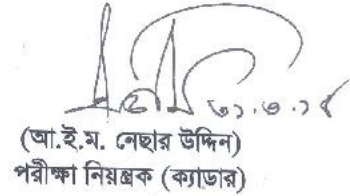 (আ.ই.ম. নেছার উদ্দিন)
পরীক্ষা নিয়ন্ত্রক (ক্যাডার)